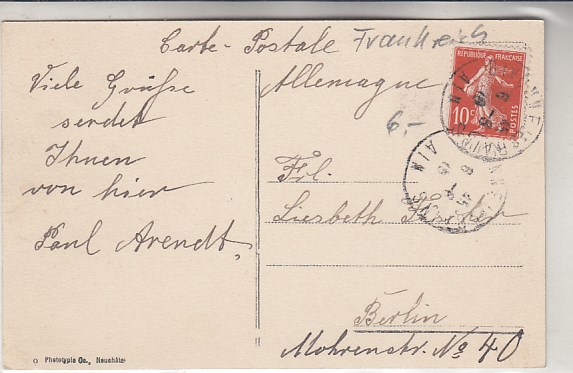 Carte-Postale Frankreich
Allemagne
Viele Grüße
sendet
Ihnen
von hier
Paul Arendt.
6,-
RÉPUBLIQUE FRANÇAISE
10c
POSTES
AIN
AIN
Frl.
Liesbeth
Berlin
Mohrenstr. No 40
Phototypie Co., Neuchâtel